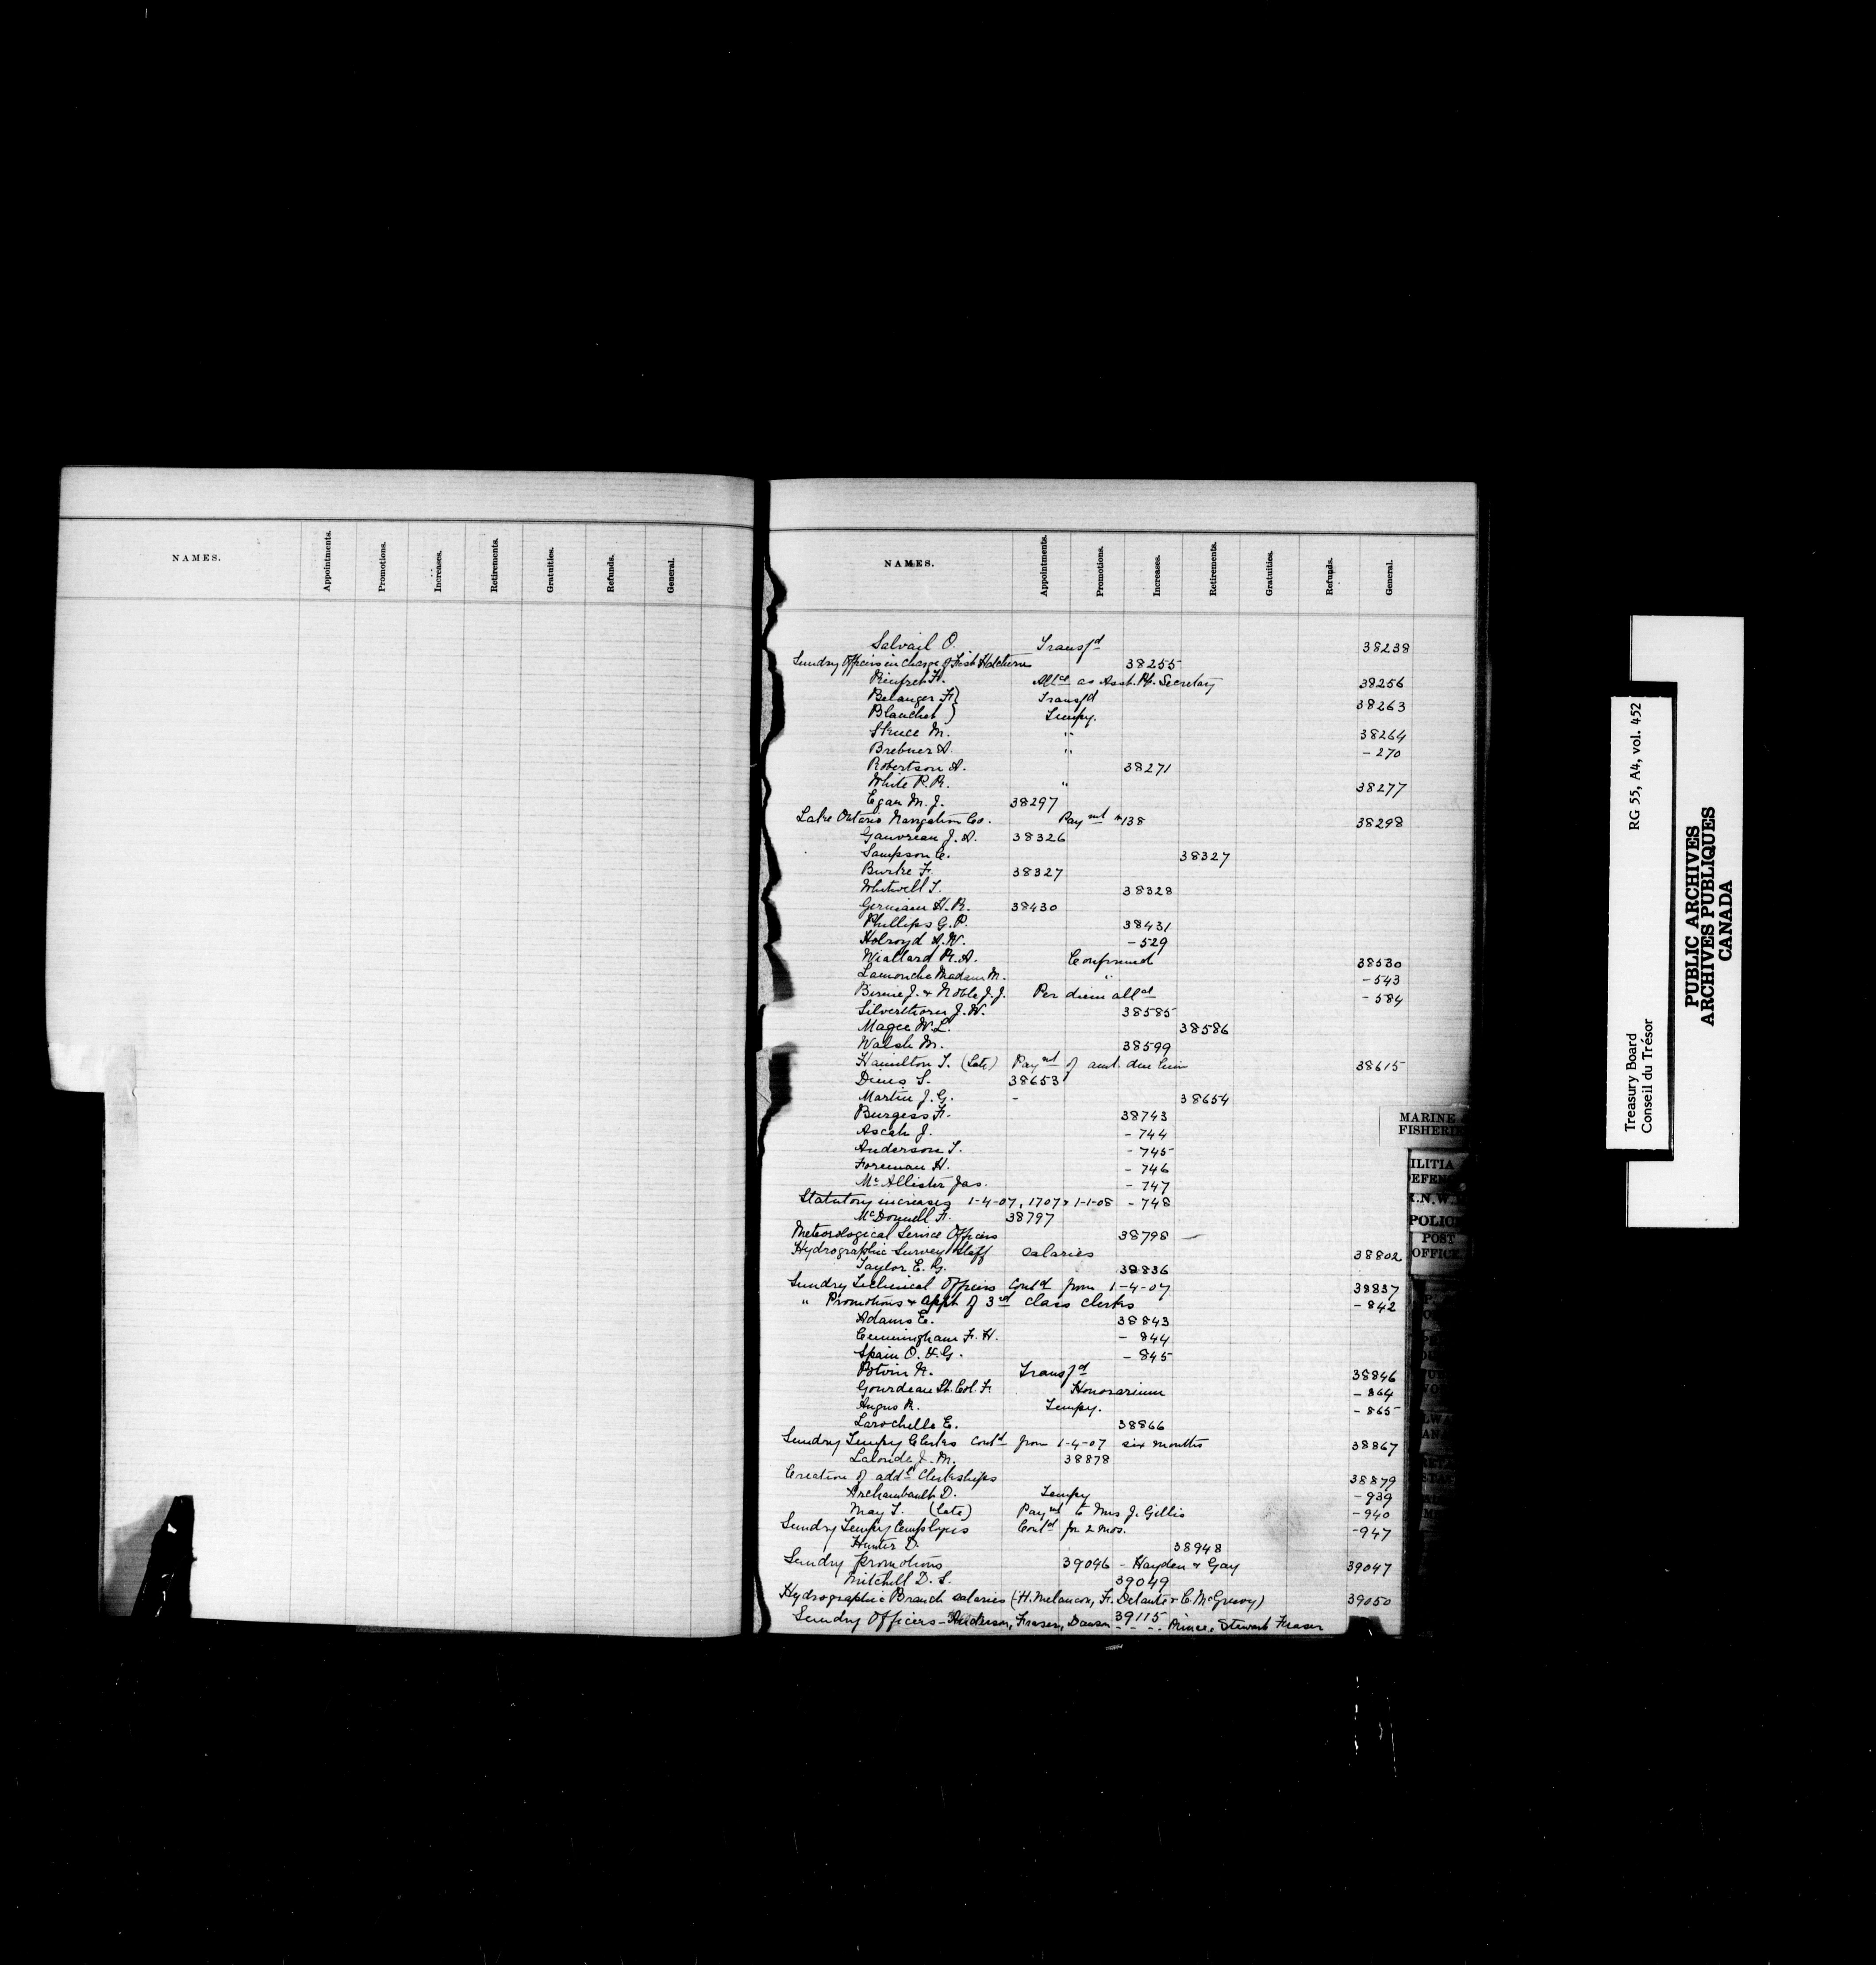 NAMES. Appointments. Promotions. Increases. Retirements. Gratuities. Refunds. General.
NAMES. Appointments. Promotions. Increases. Retirements. Gratuities. Refunds. General.
Salvail O. Transfd 38238
Sundry Officers in charge of Fish Hatcheries 38255
Rinfret F. Allce as Asst. Pt. Secretary 38256
Belanger F. } Transfd 38263
Blanchet } Tempy.
Skuce M. " 38264
Brebner A. " - 270
Robertson A. 38271
White R.R. " 38277
Egan M. J. 38297
Lake Ontario Navigation Co. Paymt 138 38298
Gauvreau J. A. 38326
Sampson C. 38327
Burke F. 38327
Whitwell T. 38328
Germain H. R. 38430
Phillips G. P. 38431
Holroyd A. W. - 529
Wiallard R. A. Confirmed 38530
Lamonche Madam M. " - 543
Birnie J. & Noble J. J. Per diem allce - 584
Silverthorn J. W. 38585
Magee W. L. 38586
Walsh M. 38599
Hamilton T. (Late) Paymt of amt. due him 38615
Dines S. 38653
Martin J. G. - 38654
Burgess F. 38743
Ascah J. - 744
Anderson T. - 745
Foreman H. - 746
McAllister Jas. - 747
Statutory increases 1-4-07, 1707 & 1-1-08 - 748
McDonnell F. 38797
Meteorological Service Officers 38798 —
Hydrographic Survey Staff salaries 38802
Taylor E. G. 38836
Sundry Technical Officers Contd from 1-4-07 38837
" Promotions & appt of 3rd class clerks - 842
Adams E. 38843
Cunningham F. H. - 844
Spain O. G. - 845
Potvin N. Transfd 38846
Gourdeau Lt. Col. F. Honorarium - 864
Angus R. Tempy. - 865
Larochelle E. 38866
Sundry Tempy Clerks contd from 1-4-07 six months 38867
Lalonde J. M. 38878
Creation of addl Clerkships 38879
Archambault D. Tempy - 939
May T. (late) Paymt to Mrs J. Gillis - 940
Sundry Tempy Employees Contd for 2 mos. - 947
Hunter D. 38948
Sundry promotions 39046 - Hayden & Gay 39047
Mitchell D. S. 39049
Hydrographic Branch salaries (H. Melancon, F. Delaute & C. McGreevy) 39050
Sundry Officers - Anderson, Fraser, Dawson 39115 Prince, Stewart Fraser
MARINE &
FISHERIE
ILITIA
EFENC
.N.W.
POLIC
POST
OFFICE
Treasury Board RG 55, A4, vol. 452
Conseil du Trésor
PUBLIC ARCHIVES
ARCHIVES PUBLIQUES
CANADA